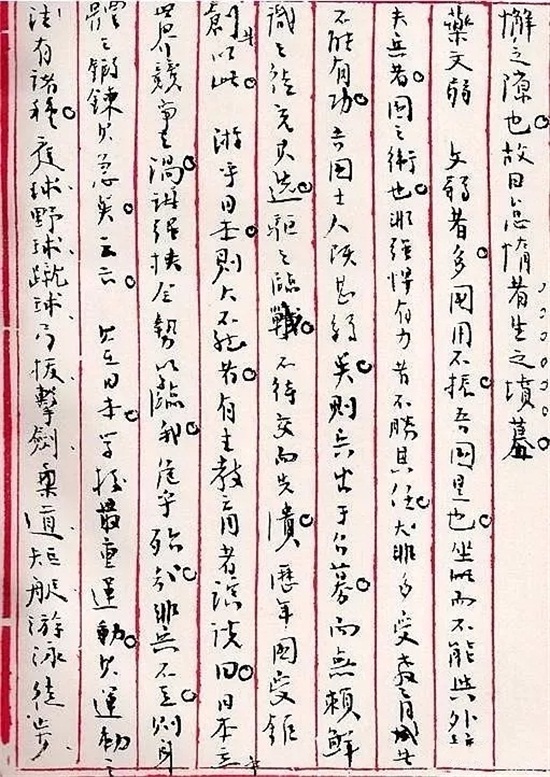 懈之隙也故曰怠惰者生之墳墓
藥文弱 文弱者多國用不振吾國是也坐此而不能與外
夫兵者國之術也非強悍有力者不勝其任尤非多受教育
不能有功吾國士人既甚弱矣則兵出于召募而無賴鮮
識之徒充其選驅之臨戰不待交而先潰歷年國受鉅
創以此 游乎日本則大不然者有主教育者演說曰日本立
世界競爭之渦詳強挾全勢以臨我危乎殆哉非兵不立則身
體之鍛鍊其急矣云云 其在日本學校最重運動其運動之
法有諸種庭球野球蹴球弓拔擊劍柔道短艇游泳徒步